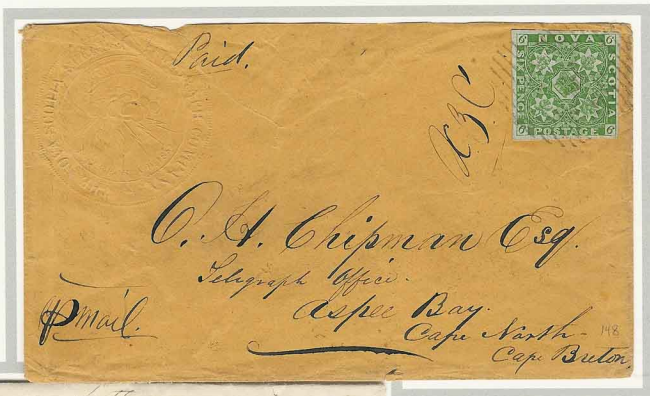 Paid.
NOVA
SIX PENCE
SCOTIA
POSTAGE
6
6
6
6
O. H. Chipman Esq.
Telegraph Office.
Aspee Bay.
Cape North
Cape Breton.
p mail.
148